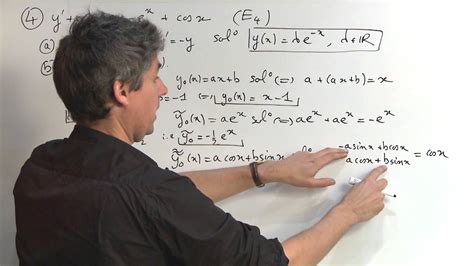 ④ y' + cos x (E₄)
(a) = -y solº y(x) = λe⁻ˣ, λ∈ℝ
(b)
y₀(x) = ax+b solº ⇔ a + (ax+b) = x
= -1 y₀(x) = x-1
ỹ₀(x) = aeˣ solº ⇔ aeˣ + aeˣ = -eˣ
i.e ỹ₀(x) = -½ eˣ
ỹ₀(x) = a cos x + b sin x solº -a sin x + b cos x
a cos x + b sin x = cos x